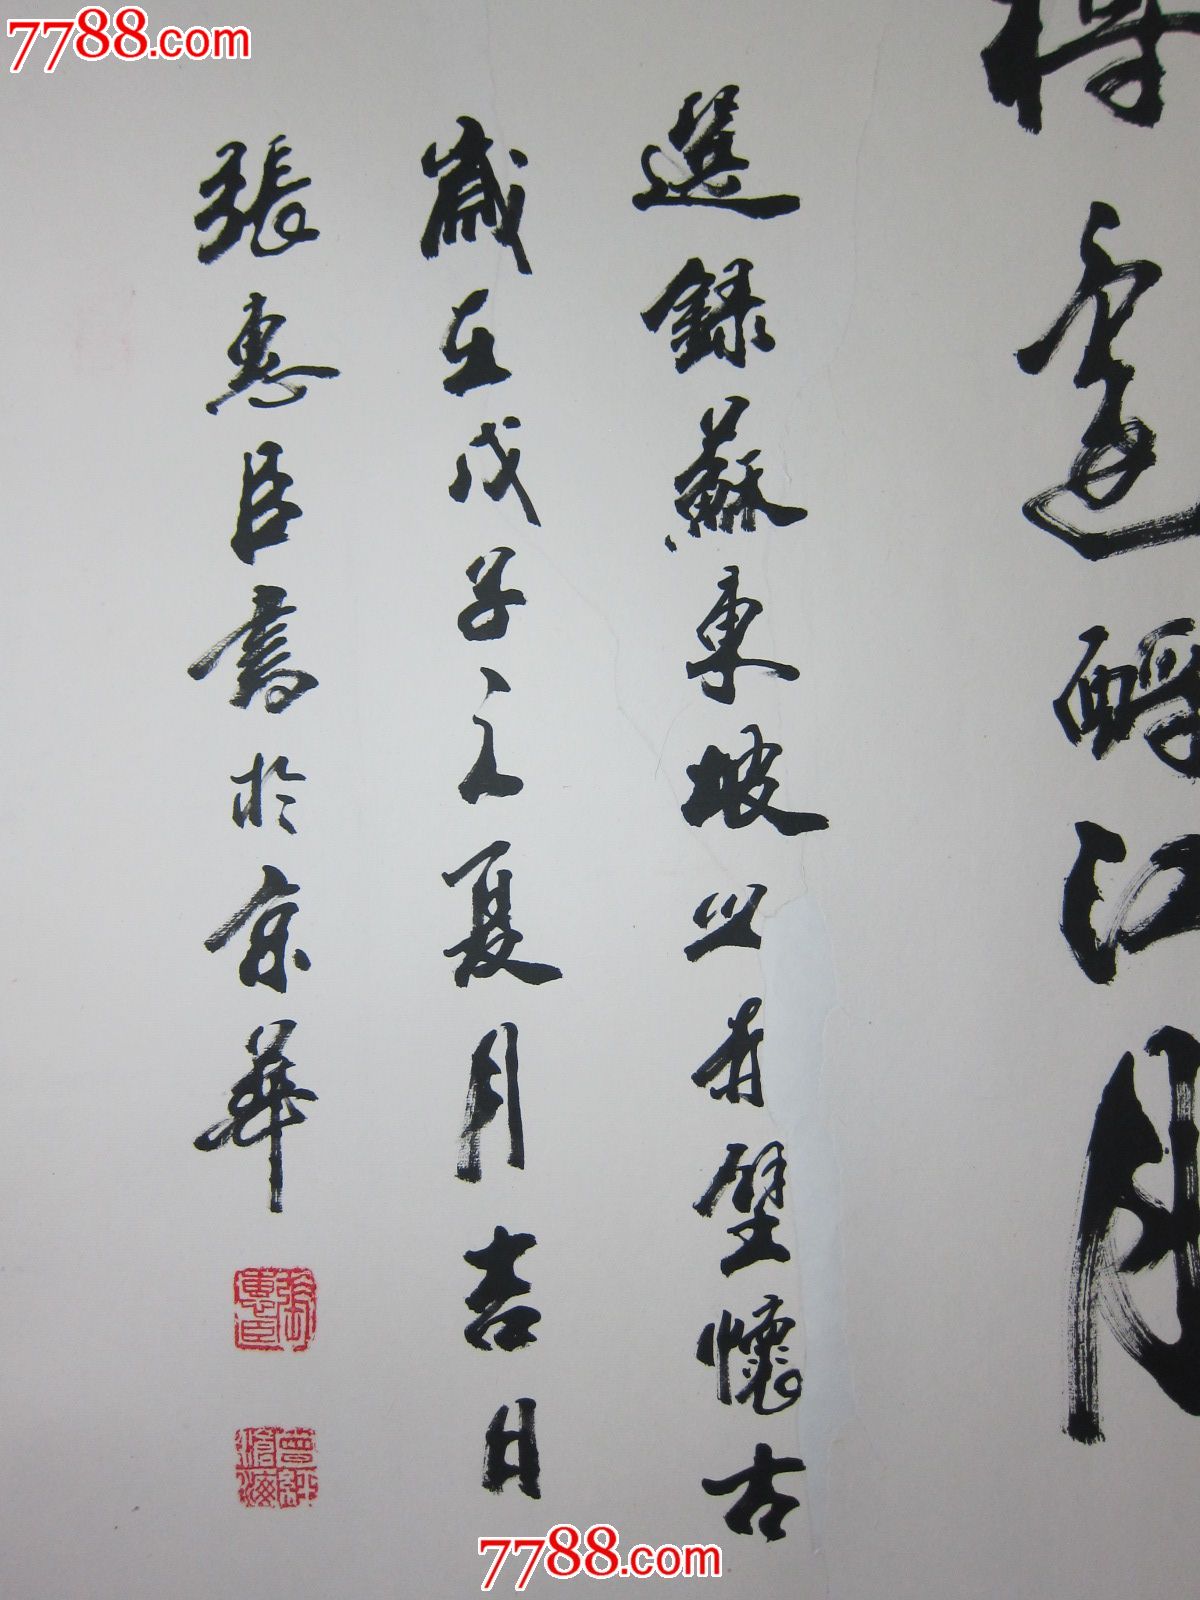 7788.com
樽還酹江月
選錄蘇東坡之赤壁懷古
歲在戊子之夏月吉日
張惠臣書於京華
張惠臣
曾經滄海
7788.com